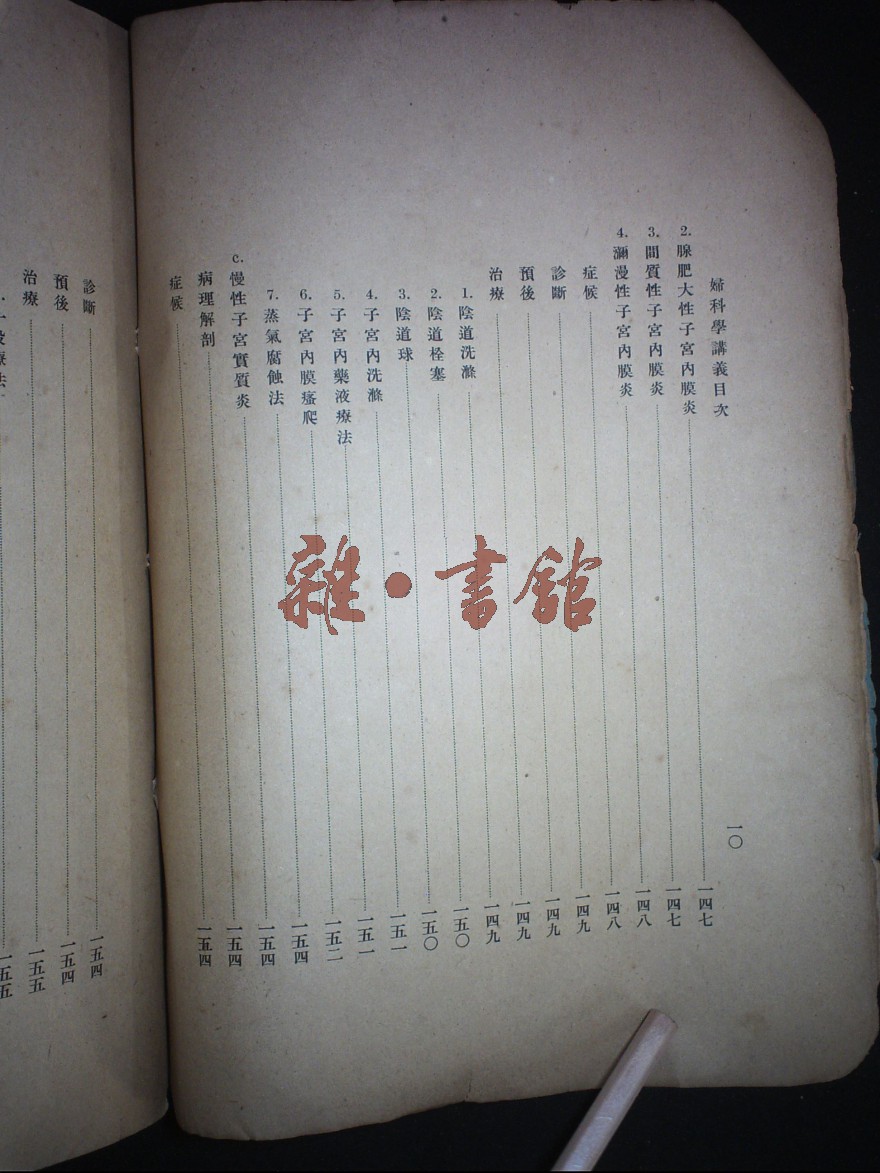 婦科學講義目次 一〇
2. 腺肥大性子宮內膜炎 一四七
3. 間質性子宮內膜炎 一四七
4. 瀰漫性子宮內膜炎 一四八
症候 一四八
診斷 一四九
預後 一四九
治療 一四九
1. 陰道洗滌 一四九
2. 陰道栓塞 一五〇
3. 陰道球 一五〇
4. 子宮內洗滌 一五一
5. 子宮內藥液療法 一五一
6. 子宮內膜瘙爬 一五二
7. 蒸氣腐蝕法 一五四
c. 慢性子宮實質炎 一五四
病理解剖 一五四
症候 一五四
診斷 一五四
預後 一五四
治療 一五五
療法 一五五
雜·書館